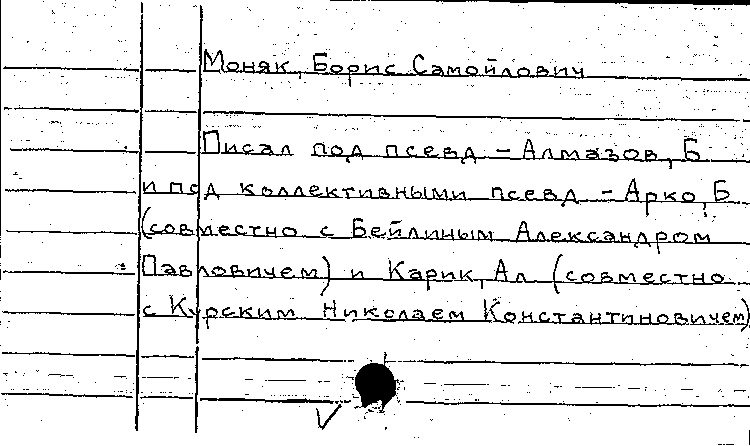 Моняк, Борис Самойлович
Писал под псевд – Алмазов, Б
и под коллективными псевд – Арко, Б
(совместно с Бейлиным Александром
Павловичем) и Карик, Ал (совместно
с Курским Николаем Константиновичем)